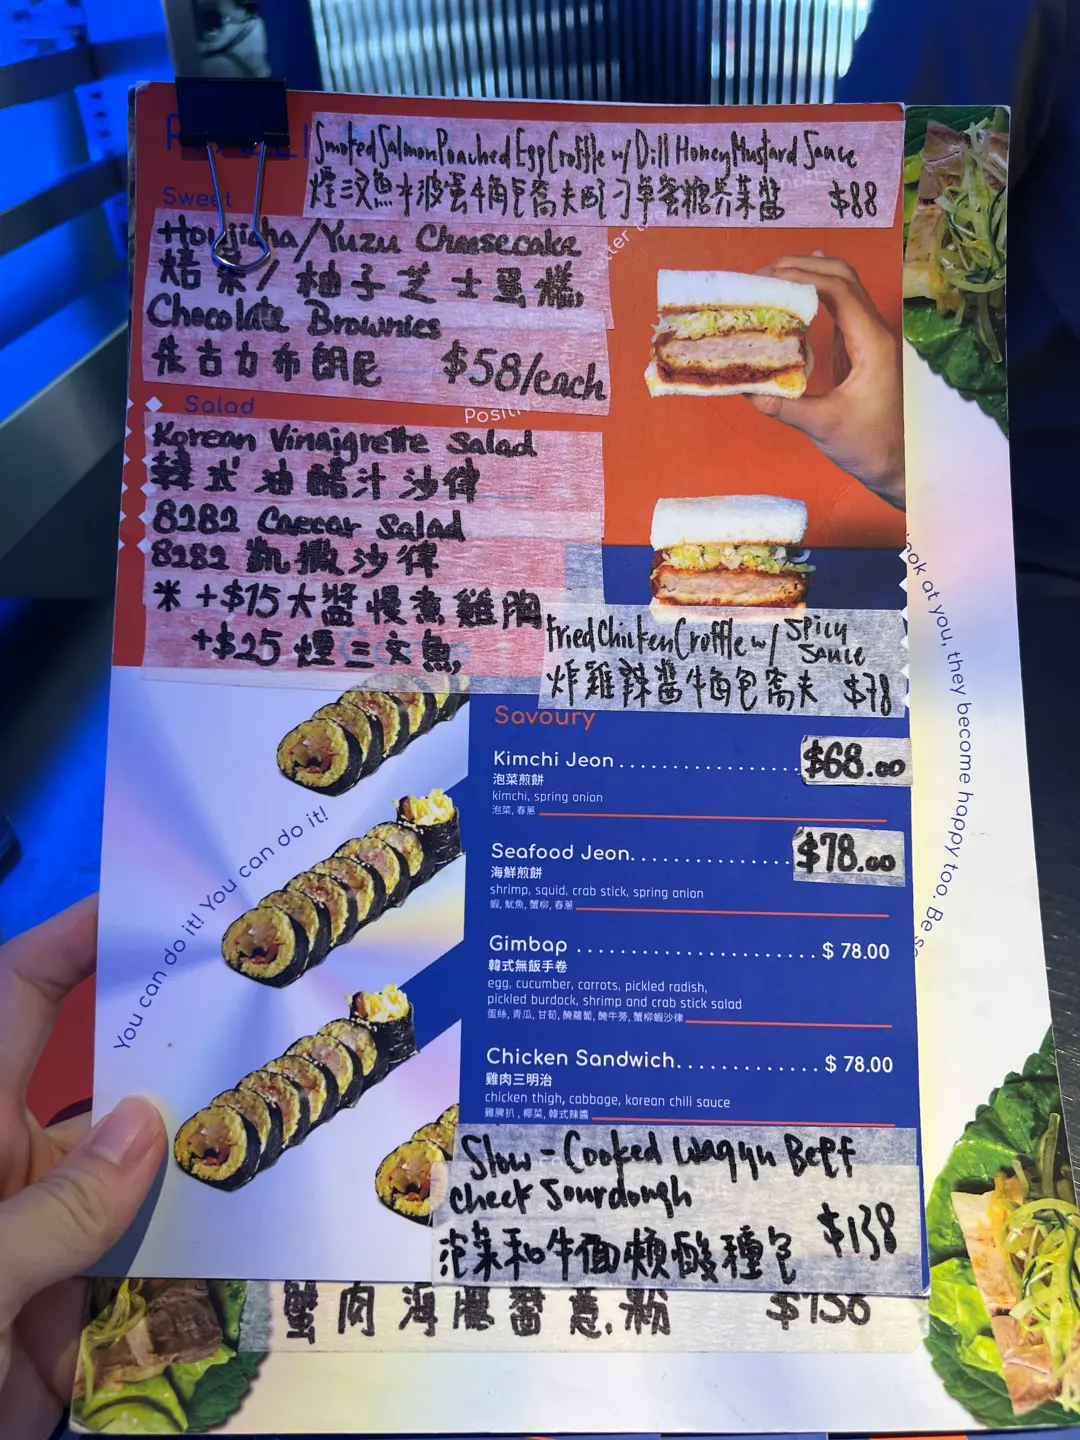 Smoked Salmon Poached Egg Croffle w/ Dill Honey Mustard Sauce
煙三文魚水波蛋牛角包窩夫配刁草蜜糖芥茉醬 $88
Sweet
Houjicha/Yuzu Cheesecake
焙茶/柚子芝士蛋糕
Chocolate Brownies
朱古力布朗尼 $58/each
Salad
Positi
Korean Vinaigrette Salad
韓式油醋汁沙律
8282 Caecar Salad
8282 凱撒沙律
米 +$15大醬慢煮雞胸
+$25煙三文魚
Fried Chicken Croffle w/ Spicy Sauce
炸雞辣醬牛角包窩夫 $78
Savoury
Kimchi Jeon ................ $68.00
泡菜煎餅
kimchi, spring onion
泡菜, 春蔥
Seafood Jeon............... $78.00
海鮮煎餅
shrimp, squid, crab stick, spring onion
蝦, 魷魚, 蟹柳, 春蔥
Gimbap ...................... $ 78.00
韓式無飯手卷
egg, cucumber, carrots, pickled radish,
pickled burdock, shrimp and crab stick salad
蛋絲, 青瓜, 甘荀, 醃蘿蔔, 醃牛蒡, 蟹柳蝦沙律
Chicken Sandwich............. $ 78.00
雞肉三明治
chicken thigh, cabbage, korean chili sauce
雞脾扒, 椰菜, 韓式辣醬
Slow-Cooked Wagyu Beef
Cheek Sourdough
泡菜和牛面頰酸種包 $138
蟹肉海膽醬意粉 $158
You can do it! You can do it!
look at you, they become happy too. Be s